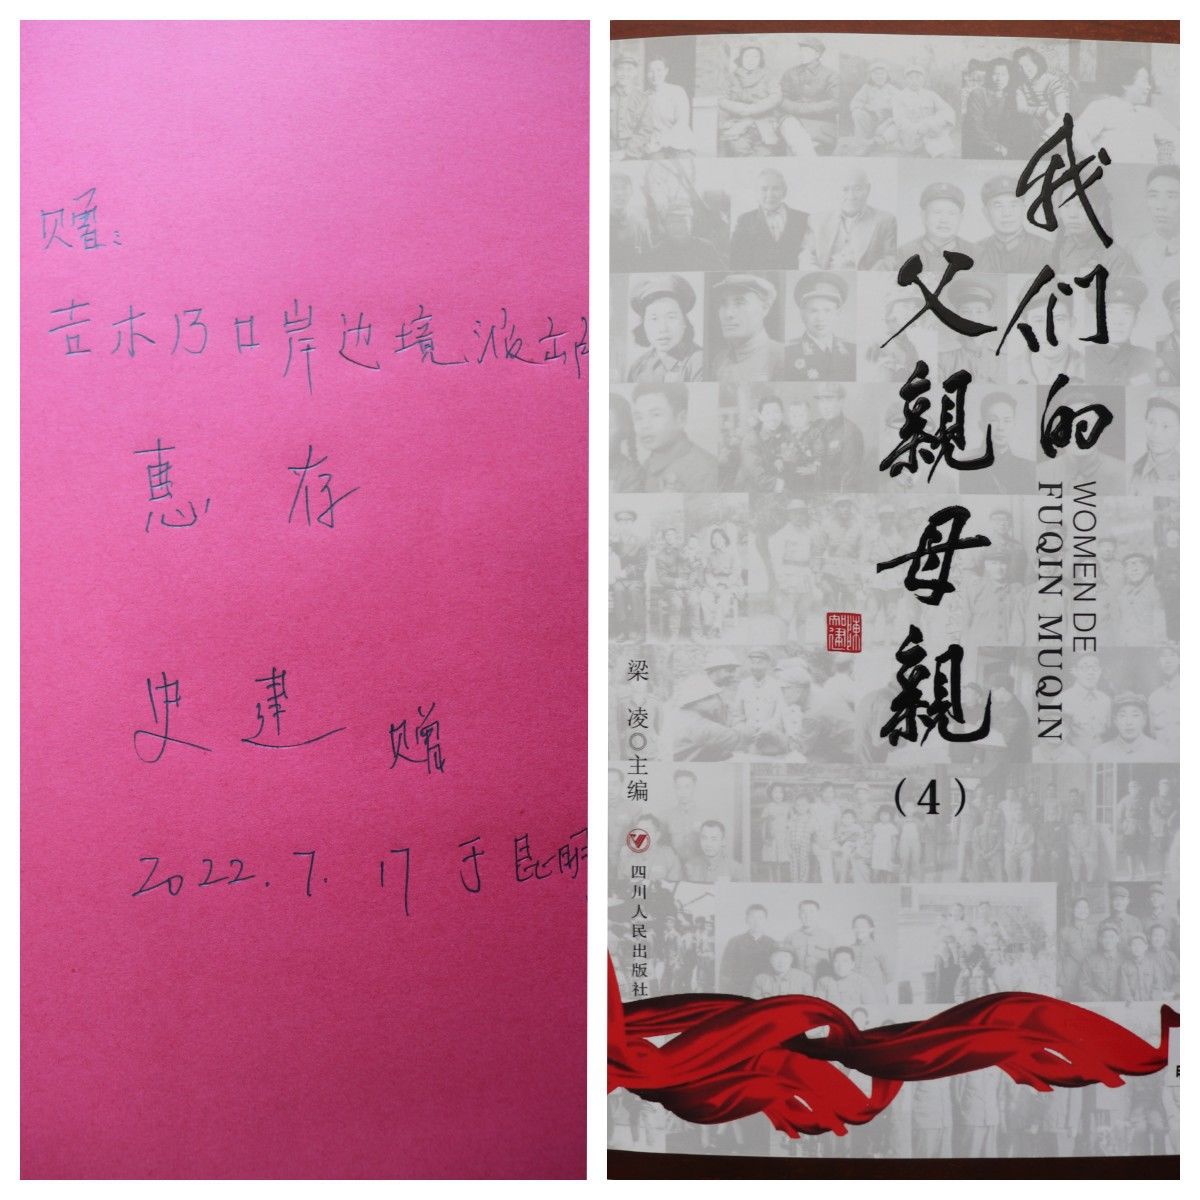 赠:
吉木乃口岸边境派出所
惠存
史建 赠
2022.7.17 于昆明
我们的
父親母親
WOMEN DE
FUQIN MUQIN
(4)
梁 凌○主编
四川人民出版社